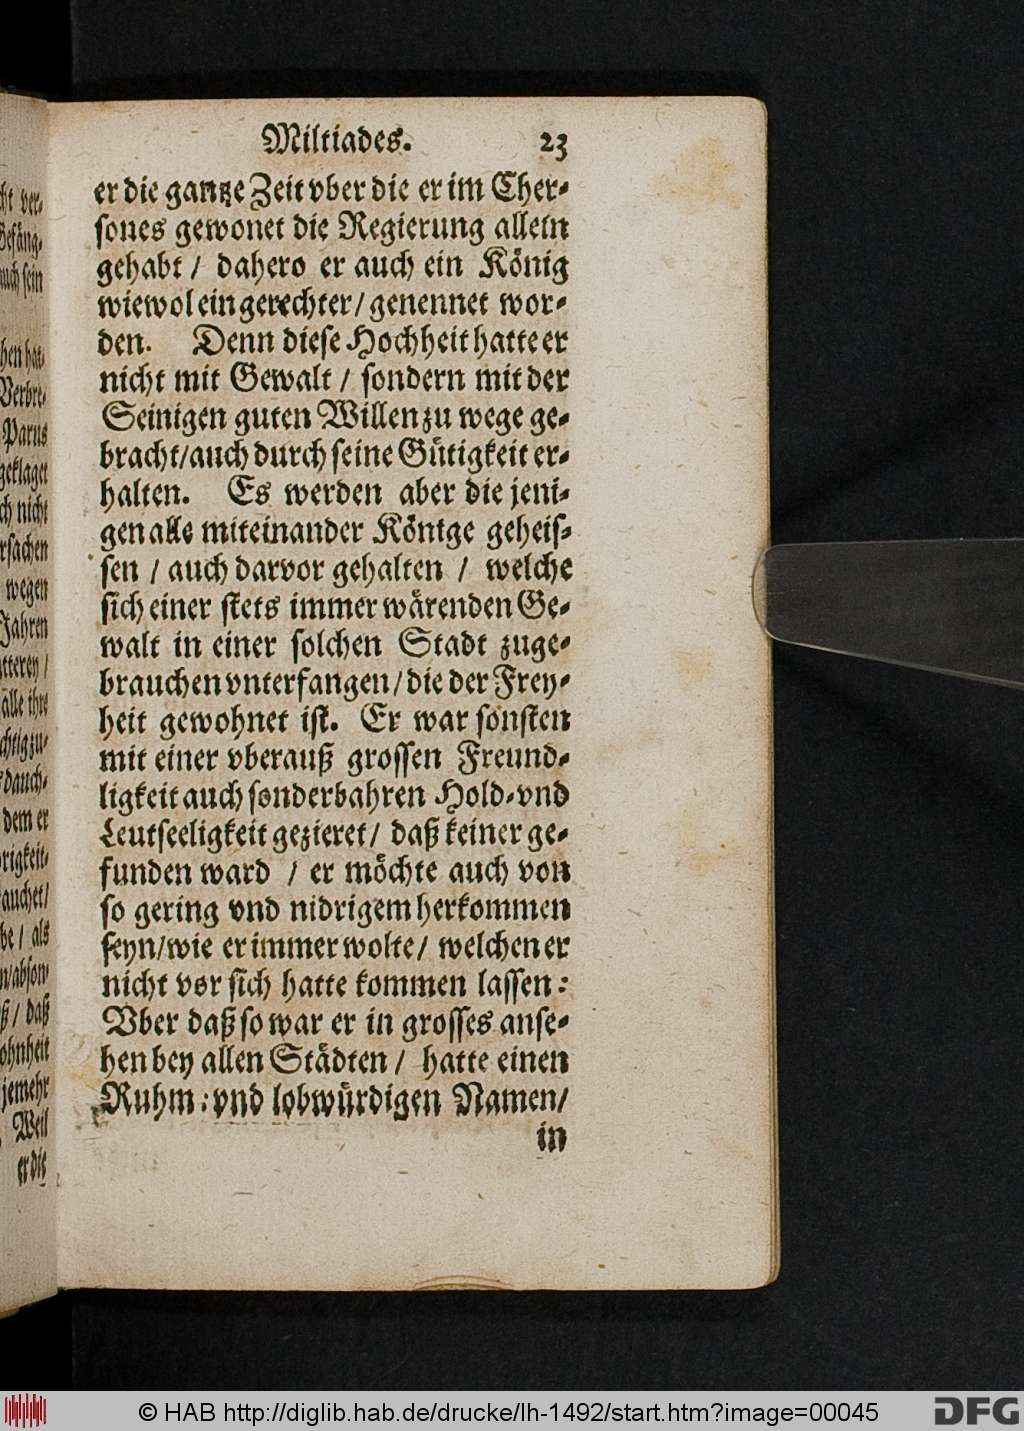 Miltiades. 23
er die gantze Zeit vber die er im Cher-
sones gewonet die Regierung allein
gehabt / dahero er auch ein König
wiewol ein gerechter / genennet wor-
den. Denn diese Hochheit hatte er
nicht mit Gewalt / sondern mit der
Seinigen guten Willen zu wege ge-
bracht / auch durch seine Gütigkeit er-
halten. Es werden aber die jeni-
gen alle miteinander Könige geheis-
sen / auch darvor gehalten / welche
sich einer stets immer wärenden Ge-
walt in einer solchen Stadt zuge-
brauchen vnterfangen / die der Frey-
heit gewohnet ist. Er war sonsten
mit einer vberauß grossen Freund-
ligkeit auch sonderbahren Hold-vnd
Leutseeligkeit gezieret / daß keiner ge-
funden ward / er möchte auch von
so gering vnd nidrigem herkommen
seyn / wie er immer wolte / welchen er
nicht vor sich hatte kommen lassen:
Vber daß so war er in grosses anse-
hen bey allen Städten / hatte einen
Ruhm: vnd lobwürdigen Namen /
in
ver-
sein
Parus
geklaget
nicht
wegen
Jahren
dem er
als
daß
jemehr
Weil
er die
© HAB http://diglib.hab.de/drucke/lh-1492/start.htm?image=00045
DFG